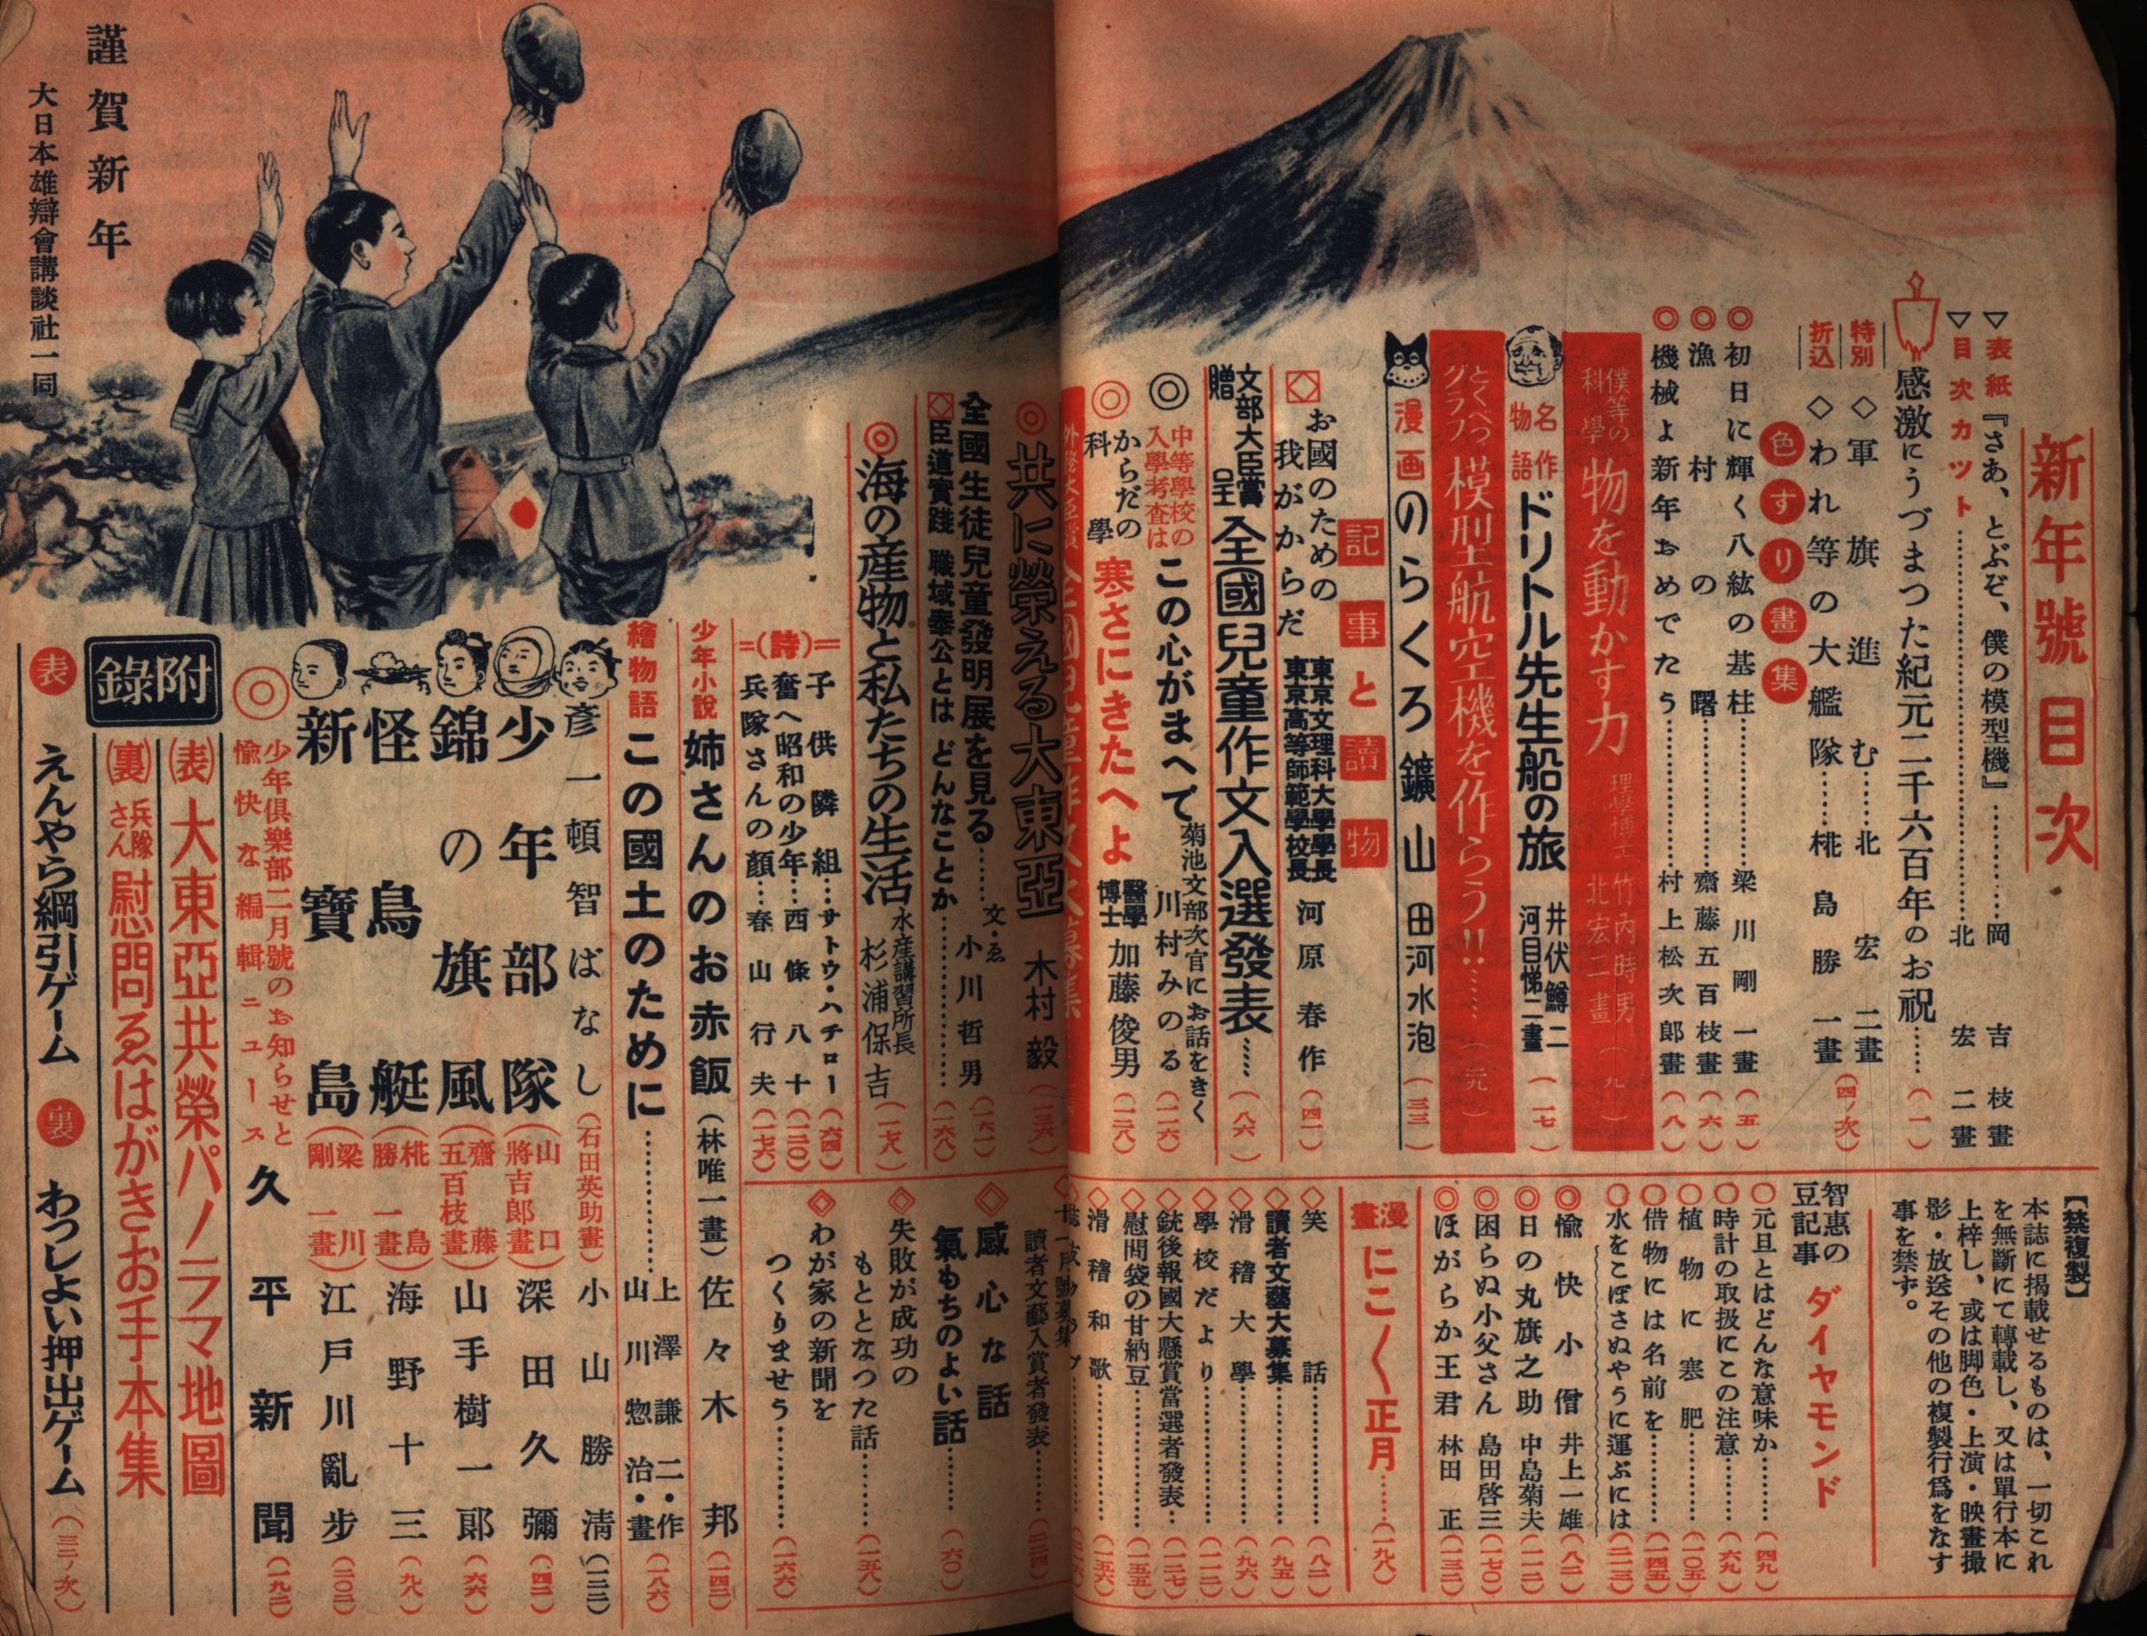 新年號 目次
▽表紙『さあ、とぶぞ、僕の模型機』…………岡吉枝畫
▽目次カット……………………北宏二畫
感激にうづまつた紀元二千六百年のお祝……(一)
特別折込
◇軍旗進む……北宏二畫
◇われ等の大艦隊……椛島勝一畫(四ノ次)
色すり畫集
◎初日に輝く八紘の基柱…………梁川剛一畫(五)
◎漁村の曙…………齋藤五百枝畫(六)
◎機械よ新年おめでたう…………村上松次郎畫(八)
僕等の科學 物を動かす力 理學博士 竹内時男 北宏二畫(九)
名作物語 ドリトル先生船の旅 井伏鱒二 河目悌二畫(一七)
とくべつグラフ 模型航空機を作らう!!……(二九)
漫画 のらくろ鑛山 田河水泡(三三)
記事と讀物
◇お國のための我がからだ 東京文理科大學學長 東京高等師範學校長 河原春作(四一)
文部大臣賞贈呈 全國兒童作文入選發表……(八六)
◎中等學校の入學考査は この心がまへで 菊池文部次官にお話をきく 川村みのる(一一六)
◎からだの科學 寒さにきたへよ 醫學博士 加藤俊男(一二八)
◎共に榮える大東亞 木村毅(一三六)
全國生徒兒童發明展を見る……文・ゑ 小川哲男(一六一)
◇臣道實踐 職域奉公とは どんなことか…………(一六八)
◎海の産物と私たちの生活 水産講習所長 杉浦保吉(一七八)
=(詩)=
子供隣組…サトウ・ハチロー(六四)
奮へ昭和の少年…西條八十(一一〇)
兵隊さんの顔…春山行夫(一七六)
少年小説 姉さんのお赤飯(林唯一畫)佐々木邦(一四二)
繪物語 この國土のために…………上澤謙二・作 山川惣治・畫(一八六)
彦一頓智ばなし(石田英助畫)小山勝清(一二二)
少年部隊(山口將吉郎畫)深田久彌(四二)
錦の旗風(齋藤五百枝畫)山手樹一郎(六六)
怪鳥艇(椛島勝一畫)海野十三(九八)
新寶島(梁川剛一畫)江戸川亂歩(二〇二)
◎少年倶樂部二月號のお知らせと愉快な編輯ニュース 久平新聞(一九二)
附錄
(表)大東亞共榮パノラマ地圖
(裏)兵隊さん慰問ゑはがきお手本集
表 えんやら綱引ゲーム 裏 わつしよい押出ゲーム(三二ノ次)
【禁複製】
本誌に揭載せるものは、一切これ
を無斷にて轉載し、又は單行本に
上梓し、或は脚色・上演・映畫撮
影・放送その他の複製行爲をなす
事を禁ず。
智惠の豆記事 ダイヤモンド
○元旦とはどんな意味か……(四九)
○時計の取扱にこの注意……(六九)
○植物に寒肥……(一〇五)
○借物には名前を……(一四五)
○水をこぼさぬやうに運ぶには(二一三)
◎愉快小僧 井上一雄(八二)
◎日の丸旗之助 中島菊夫(一一二)
◎困らぬ小父さん 島田啓三(一七〇)
◎ほがらか王君 林田正(一三二)
漫畫 にこ〱正月……(一九八)
◇笑話…………(八二)
◇讀者文藝大募集…………(九五)
◇滑稽大學…………(九六)
◇學校だより…………(一一二)
◇銃後報國大懸賞當選者發表…(一二七)
◇慰問袋の甘納豆…………(一五五)
◇滑稽和歌…………(一五六)
讀者文藝入賞者發表……(二二四)
◇感心な話 氣もちのよい話……(六〇)
◇失敗が成功のもととなつた話……(一五八)
◇わが家の新聞をつくりませう…………(一六六)
謹賀新年
大日本雄辯會講談社一同